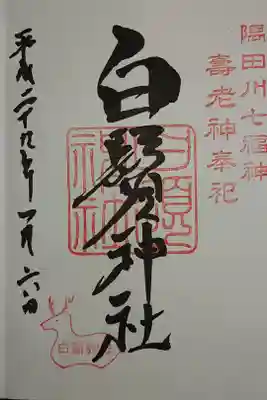 隅田川七福神
壽老神奉祀
白鬚神社
平成二十九年一月六日
白鬚神社